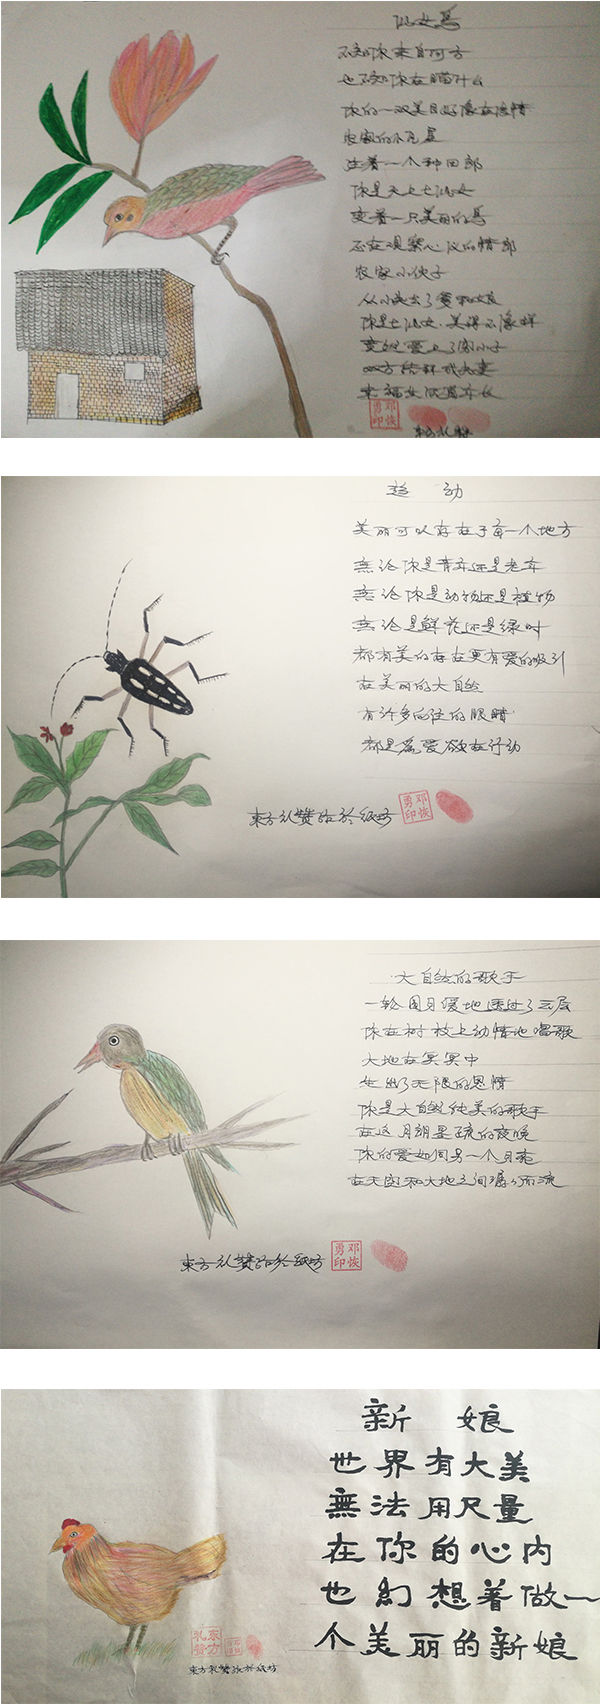 仙女鸟
不知你来自何方
也不知你在瞄什么
你的一双美目好像在传情
农家的小瓦屋
住着一个种田郎
你是天上七仙女
变着一只美丽的鸟
正在观察心仪的情郎
农家小伙子
从小失去了爹和娘
你是七仙女.美得不像样
突然爱上了穷小子
双方结拜成夫妻
幸福女伏置存长
邓恢勇印
趋 动
美丽可以存在于每一个地方
無论你是青年还是老年
無论你是动物还是植物
無论是鲜花还是绿叶
都有美的存在更有爱的吸引
在美丽的大自然
有许多向往的眼睛
都是为爱欲在行动
東方礼赞
於纸坊
邓恢勇印
大自然的歌手
一轮圆月缓缓地透过了云层
你在树枝上动情地唱歌
大地在冥冥中
生出了无限的恩情
你是大自然纯美的歌手
在这月朗星疏的夜晚
你的爱如同另一个月亮
在天空和大地之间潺潺而流
東方礼赞
於纸坊
邓恢勇印
新 娘
世界有大美
無法用尺量
在你的心内
也幻想着做一
个美丽的新娘
东方礼赞
東方礼赞
於纸坊